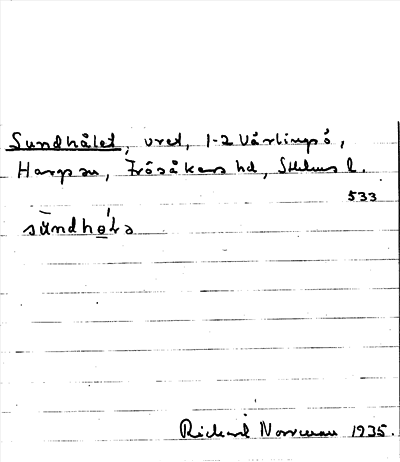 Sundhålet, vret, 1-2 Vårlingsö,
Hargs sn, Frösåkers hd, Sthlms l.
533
sūndhώ̲lə
Richard Norrman 1935.